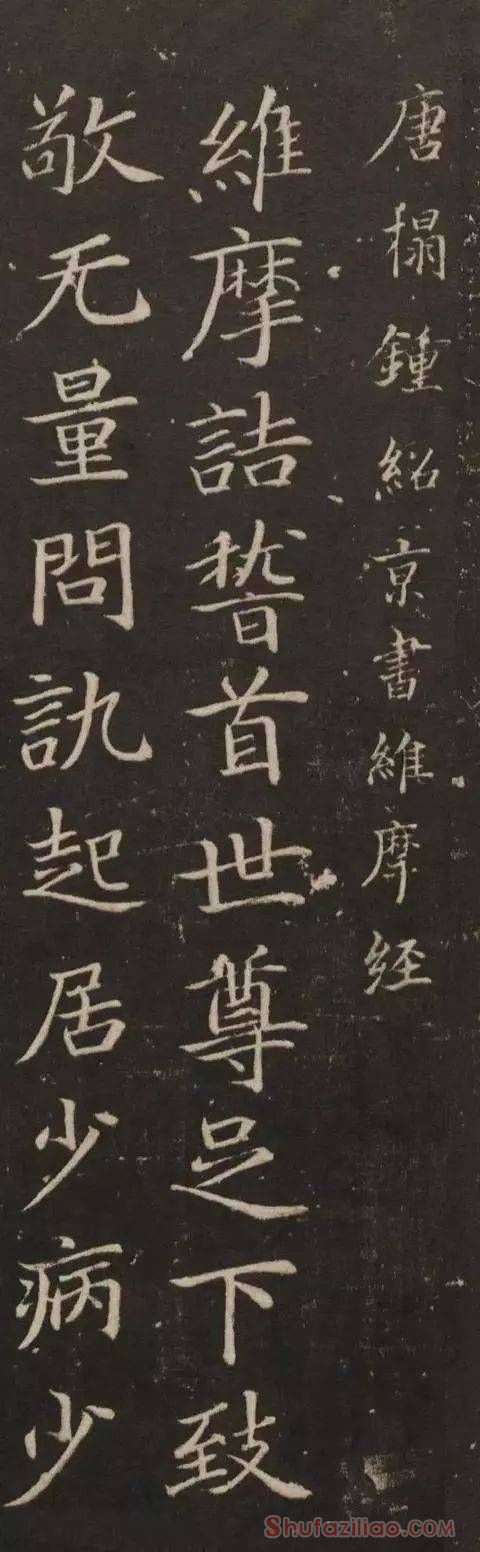 唐榻鍾紹京書維摩経
維摩詰稽首世尊足下致
敬无量問訊起居少病少
Shufaziliao.com